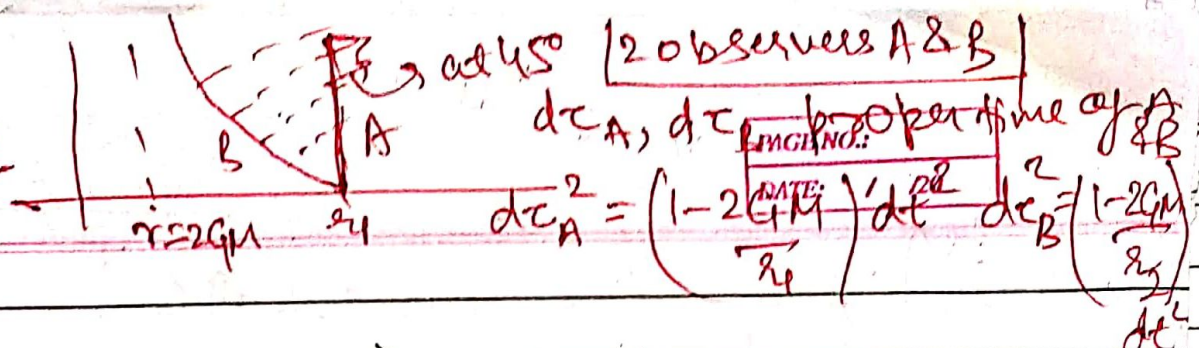 at 45° 2 observers A & B
dτ_A, dτ_B proper time of A & B
PAGE NO.:
DATE:
B A
r=2GM r₁ dτ_A² = (1-2GM/r₁) dt² dτ_B² = (1-2GM/r₂) dt²